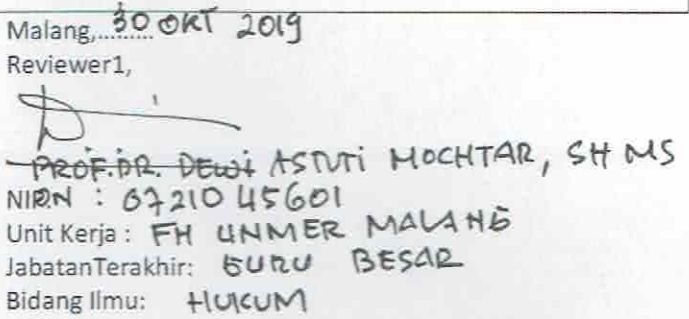 Malang, 30 OKT 2019
Reviewer1,
PROF. DR. DEWI ASTUTI MOCHTAR, SH MS
NIDN : 0721045601
Unit Kerja : FH UNMER MALANG
JabatanTerakhir: GURU BESAR
Bidang Ilmu: HUKUM